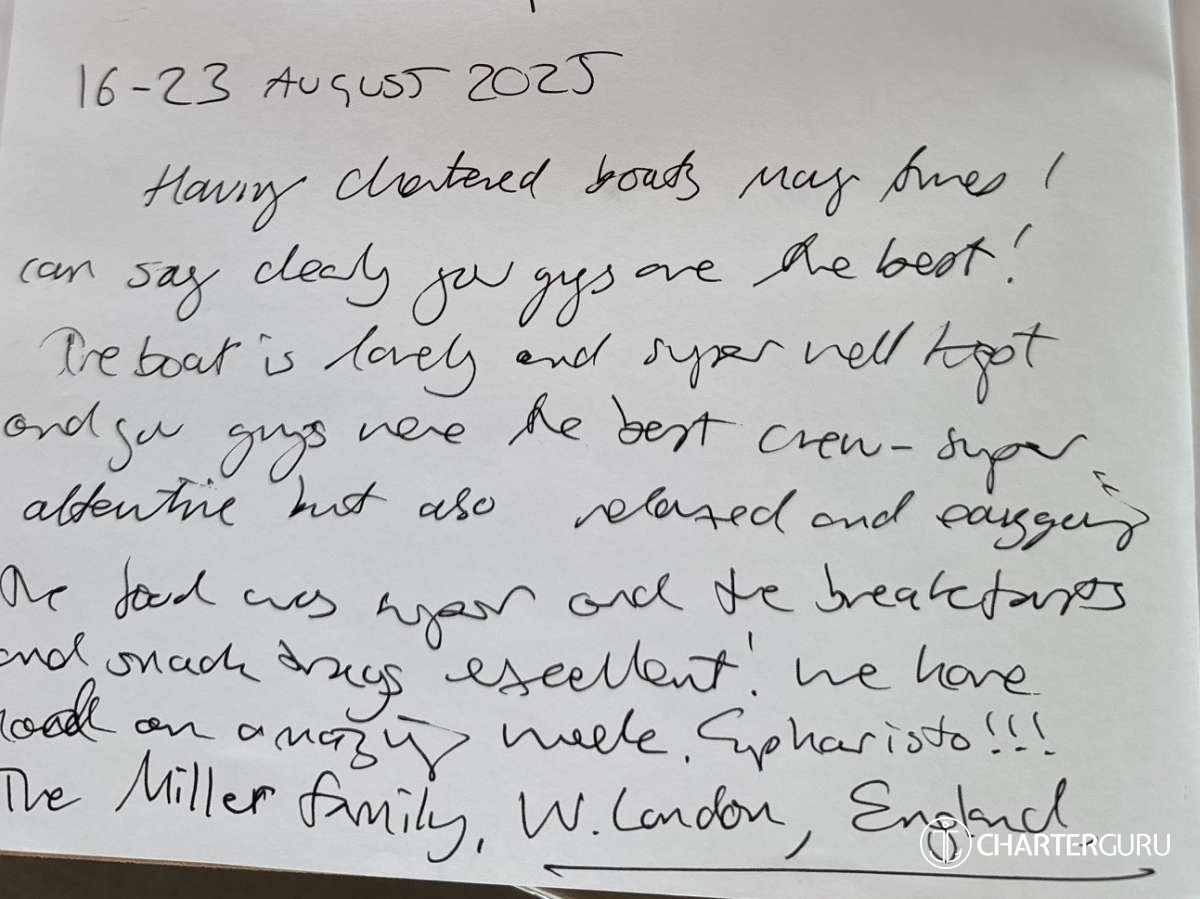 16-23 AUGUST 2025
Having chartered boats many times I
can say clearly you guys are the best!
The boat is lovely and super well kept
and you guys were the best crew - super
attentive but also relaxed and easygoing
The food was super and the breakfasts
and snack trays excellent! We have
had an amazing week. Eupharisto!!!
The Miller family, W. London, England.
CHARTERGURU